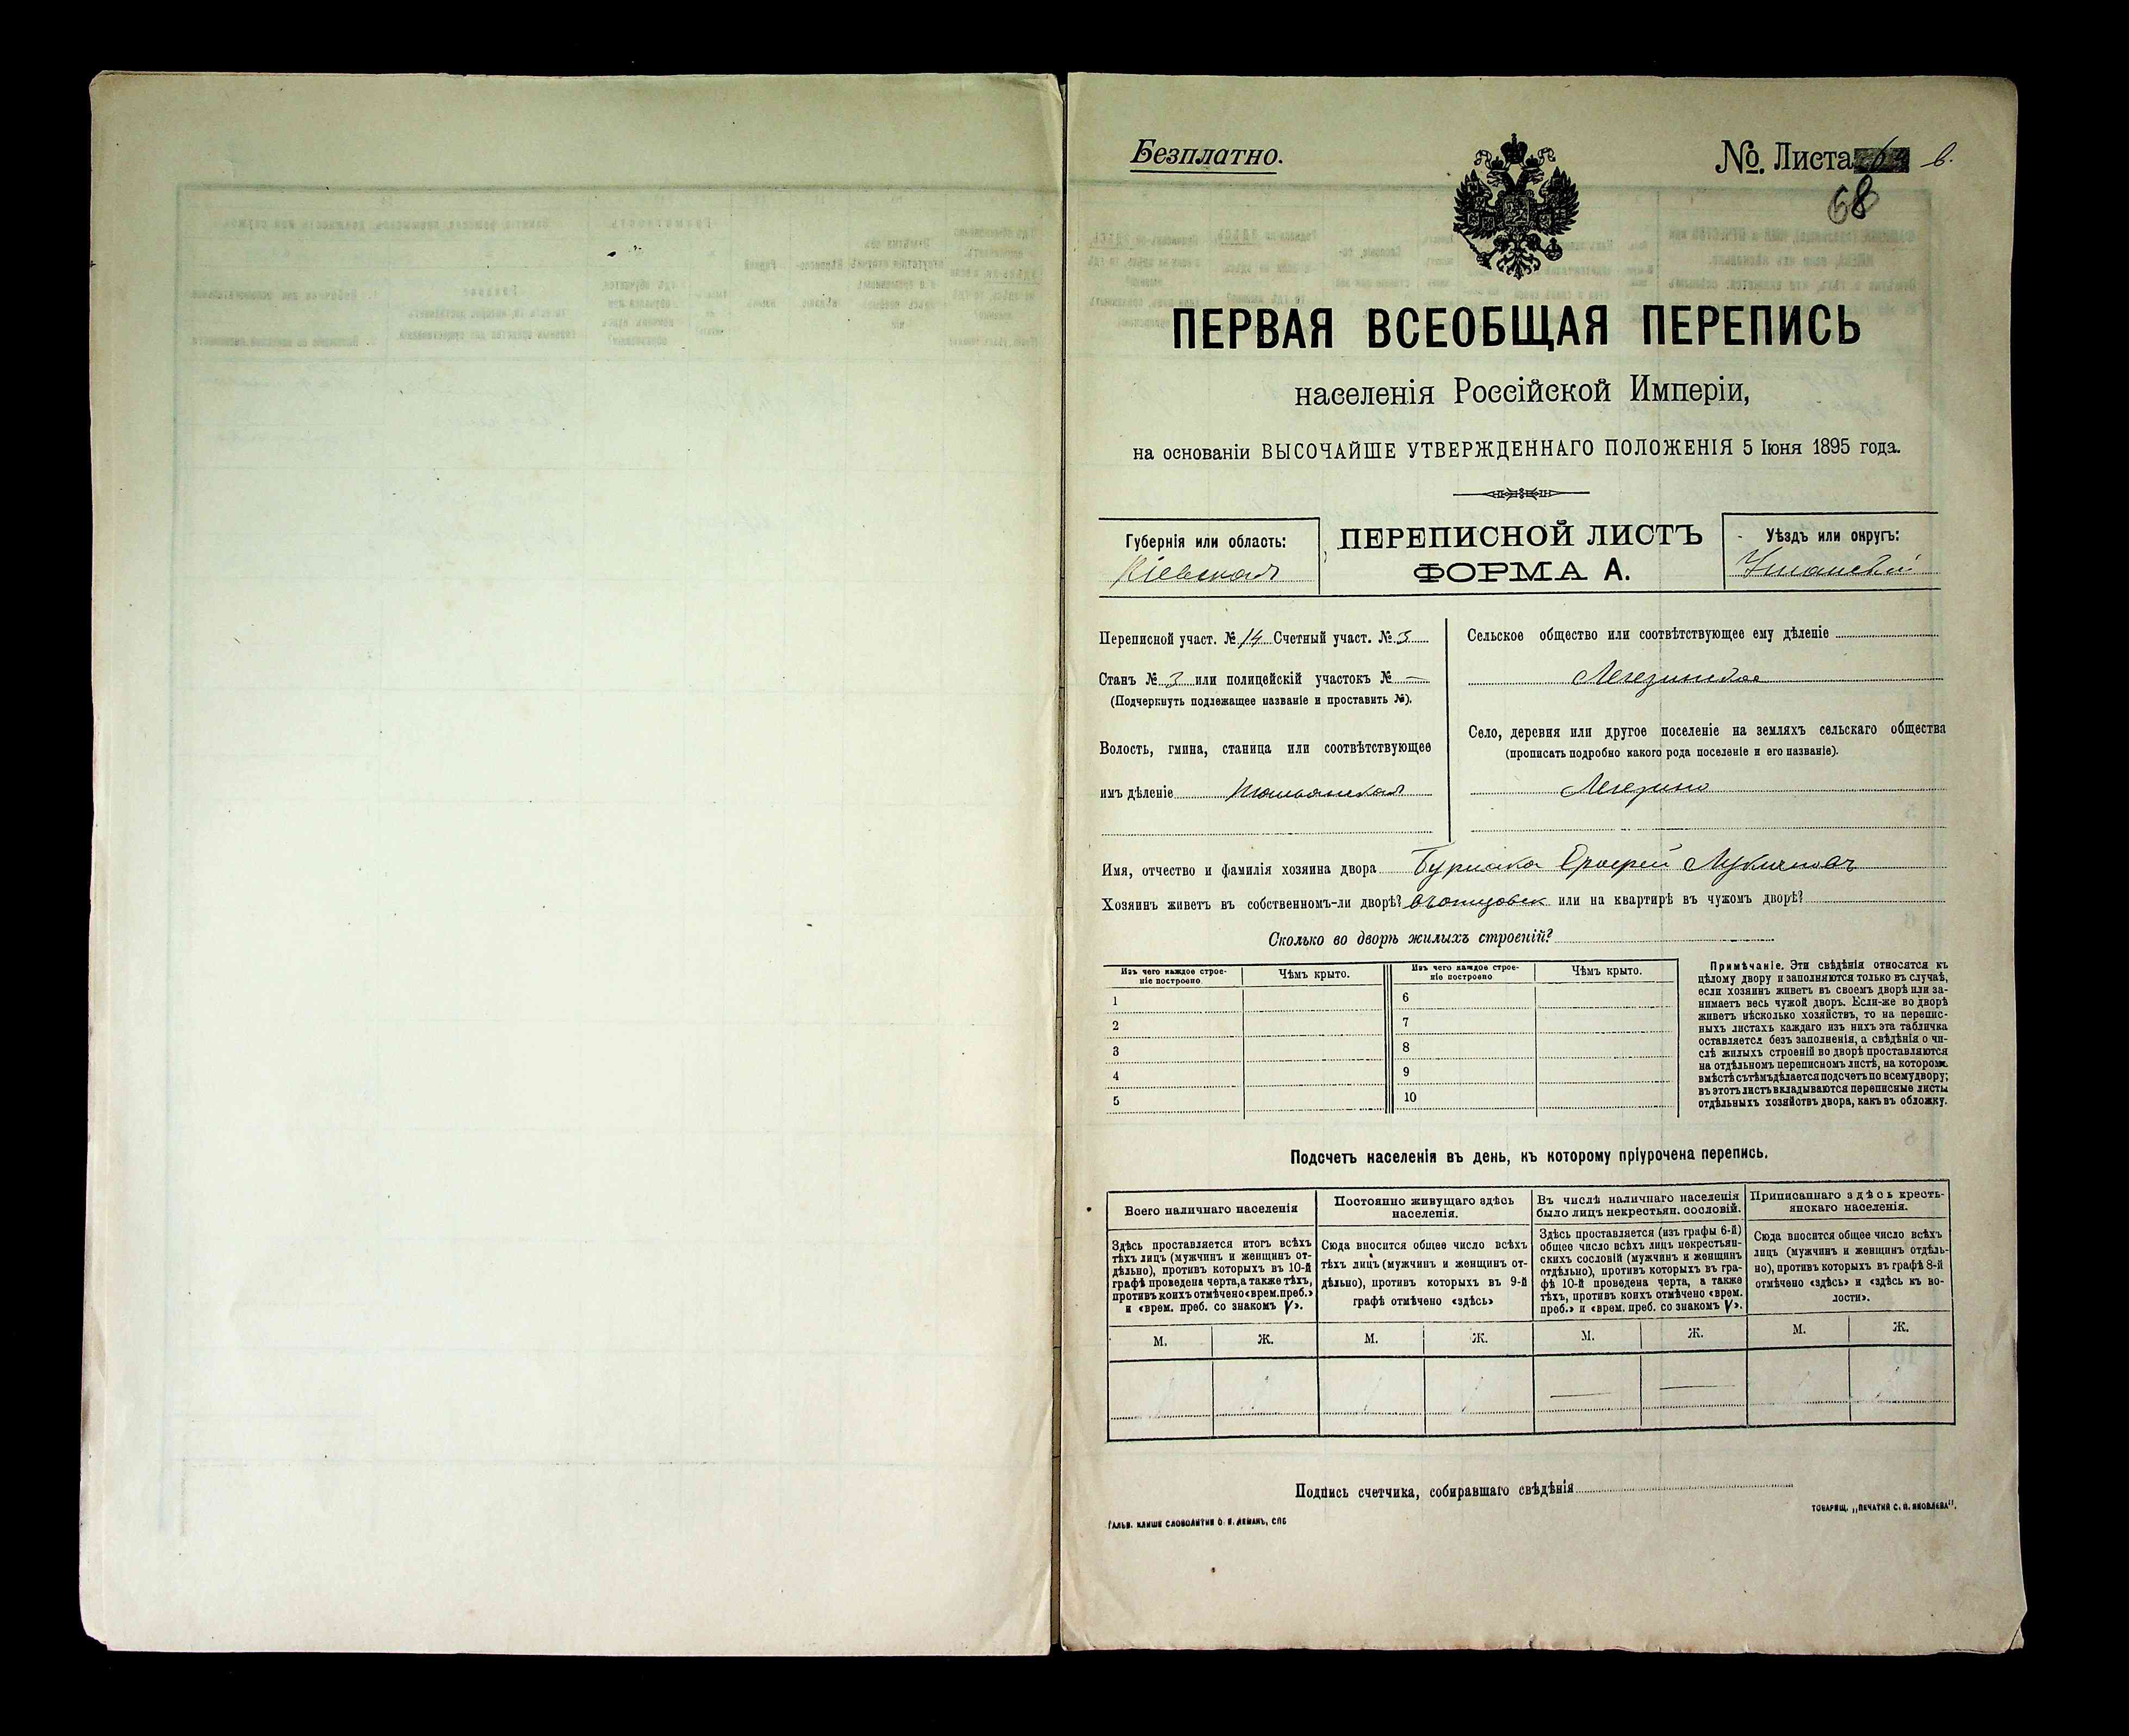 Безплатно.
№ Листа в.
68
ПЕРВАЯ ВСЕОБЩАЯ ПЕРЕПИСЬ
населенія Россійской Имперіи,
на основаніи ВЫСОЧАЙШЕ УТВЕРЖДЕННАГО ПОЛОЖЕНІЯ 5 Іюня 1895 года.
Губернія или область:
Кіевская
ПЕРЕПИСНОЙ ЛИСТЪ
ФОРМА А.
Уѣздъ или округъ:
Уманскій
Переписной участ. № 14 Счетный участ. № 3
Станъ № 3 или полицейскій участокъ № —
(Подчеркнуть подлежащее названіе и проставить №).
Волость, гмина, станица или соотвѣтствующее
имъ дѣленіе Тальянская
Сельское общество или соотвѣтствующее ему дѣленіе
Легезинское
Село, деревня или другое поселеніе на земляхъ сельскаго общества
(прописать подробно какого рода поселеніе и его названіе).
Легезино
Имя, отчество и фамилія хозяина двора Бурлака Ерофей
Хозяинъ живетъ въ собственномъ-ли дворѣ? или на квартирѣ въ чужомъ дворѣ?
Сколько во дворѣ жилыхъ строеній?
Изъ чего каждое строе-
ніе построено.
Чѣмъ крыто.
1
2
3
4
5
Изъ чего каждое строе-
ніе построено
Чѣмъ крыто.
6
7
8
9
10
Примѣчаніе. Эти свѣдѣнія относятся къ
цѣлому двору и заполняются только въ случаѣ,
если хозяинъ живетъ въ своемъ дворѣ или за-
нимаетъ весь чужой дворъ. Если-же во дворѣ
живетъ нѣсколько хозяйствъ, то на перепис-
ныхъ листахъ каждаго изъ нихъ эта табличка
оставляется безъ заполненія, а свѣдѣнія о чи-
слѣ жилыхъ строеній во дворѣ проставляются
на отдѣльномъ переписномъ листѣ, на которомъ
вмѣстѣ съ тѣмъ дѣлается подсчетъ по всему двору;
въ этотъ листъ вкладываются переписные листы
отдѣльныхъ хозяйствъ двора, какъ въ обложку.
Подсчетъ населенія въ день, къ которому пріурочена перепись.
Всего наличнаго населенія
Здѣсь проставляется итогъ всѣхъ
тѣхъ лицъ (мужчинъ и женщинъ от-
дѣльно), противъ которыхъ въ 10-й
графѣ проведена черта, а также тѣхъ,
противъ коихъ отмѣчено «врем. преб.»
и «врем. преб. со знакомъ V».
Постоянно живущаго здѣсь
населенія.
Сюда вносится общее число всѣхъ
тѣхъ лицъ (мужчинъ и женщинъ от-
дѣльно), противъ которыхъ въ 9-й
графѣ отмѣчено «здѣсь»
Въ числѣ наличнаго населенія
было лицъ некрестьян. сословій.
Здѣсь проставляется (изъ графы 6-й)
общее число всѣхъ лицъ некрестьян-
скихъ сословій (мужчинъ и женщинъ
отдѣльно), противъ которыхъ въ гра-
фѣ 10-й проведена черта, а также
тѣхъ, противъ коихъ отмѣчено «врем.
преб.» и «врем. преб. со знакомъ V».
Приписаннаго здѣсь кресть-
янскаго населенія.
Сюда вносится общее число всѣхъ
лицъ (мужчинъ и женщинъ отдѣль-
но), противъ которыхъ въ графѣ 8-й
отмѣчено «здѣсь» и «здѣсь къ во-
лости».
М. Ж. М. Ж. М. Ж. М. Ж.
1 1 1 1 — — 1 1
Подпись счетчика, собиравшаго свѣдѣнія
ТОВАРИЩ. „ПЕЧАТНЯ С. П. ЯКОВЛЕВА".
ГАЛЬВ. КЛИШЕ СЛОВОЛИТНИ О. И. ЛЕМАНЪ, СПБ